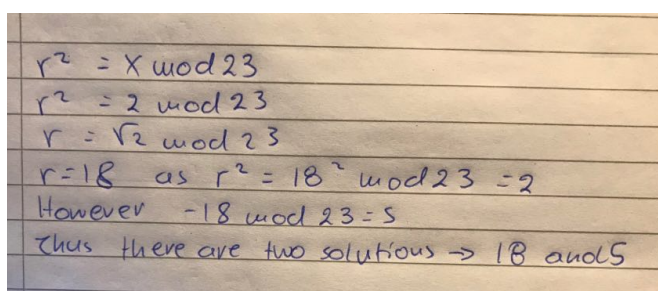 r² = X mod 23
r² = 2 mod 23
r = √2 mod 23
r=18 as r² = 18² mod 23 = 2
However -18 mod 23 = 5
Thus there are two solutions → 18 and 5